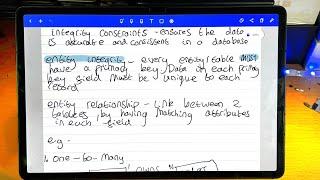 integrity constraints - ensures the data
is accurate and consistent in a database
entity integrity - every entity/table must
have a primary key. Data in each primary
key field must be unique to each
record
entity relationship - link between 2
tables by having matching attributes
in each field
e.g -
1. one-to-Many